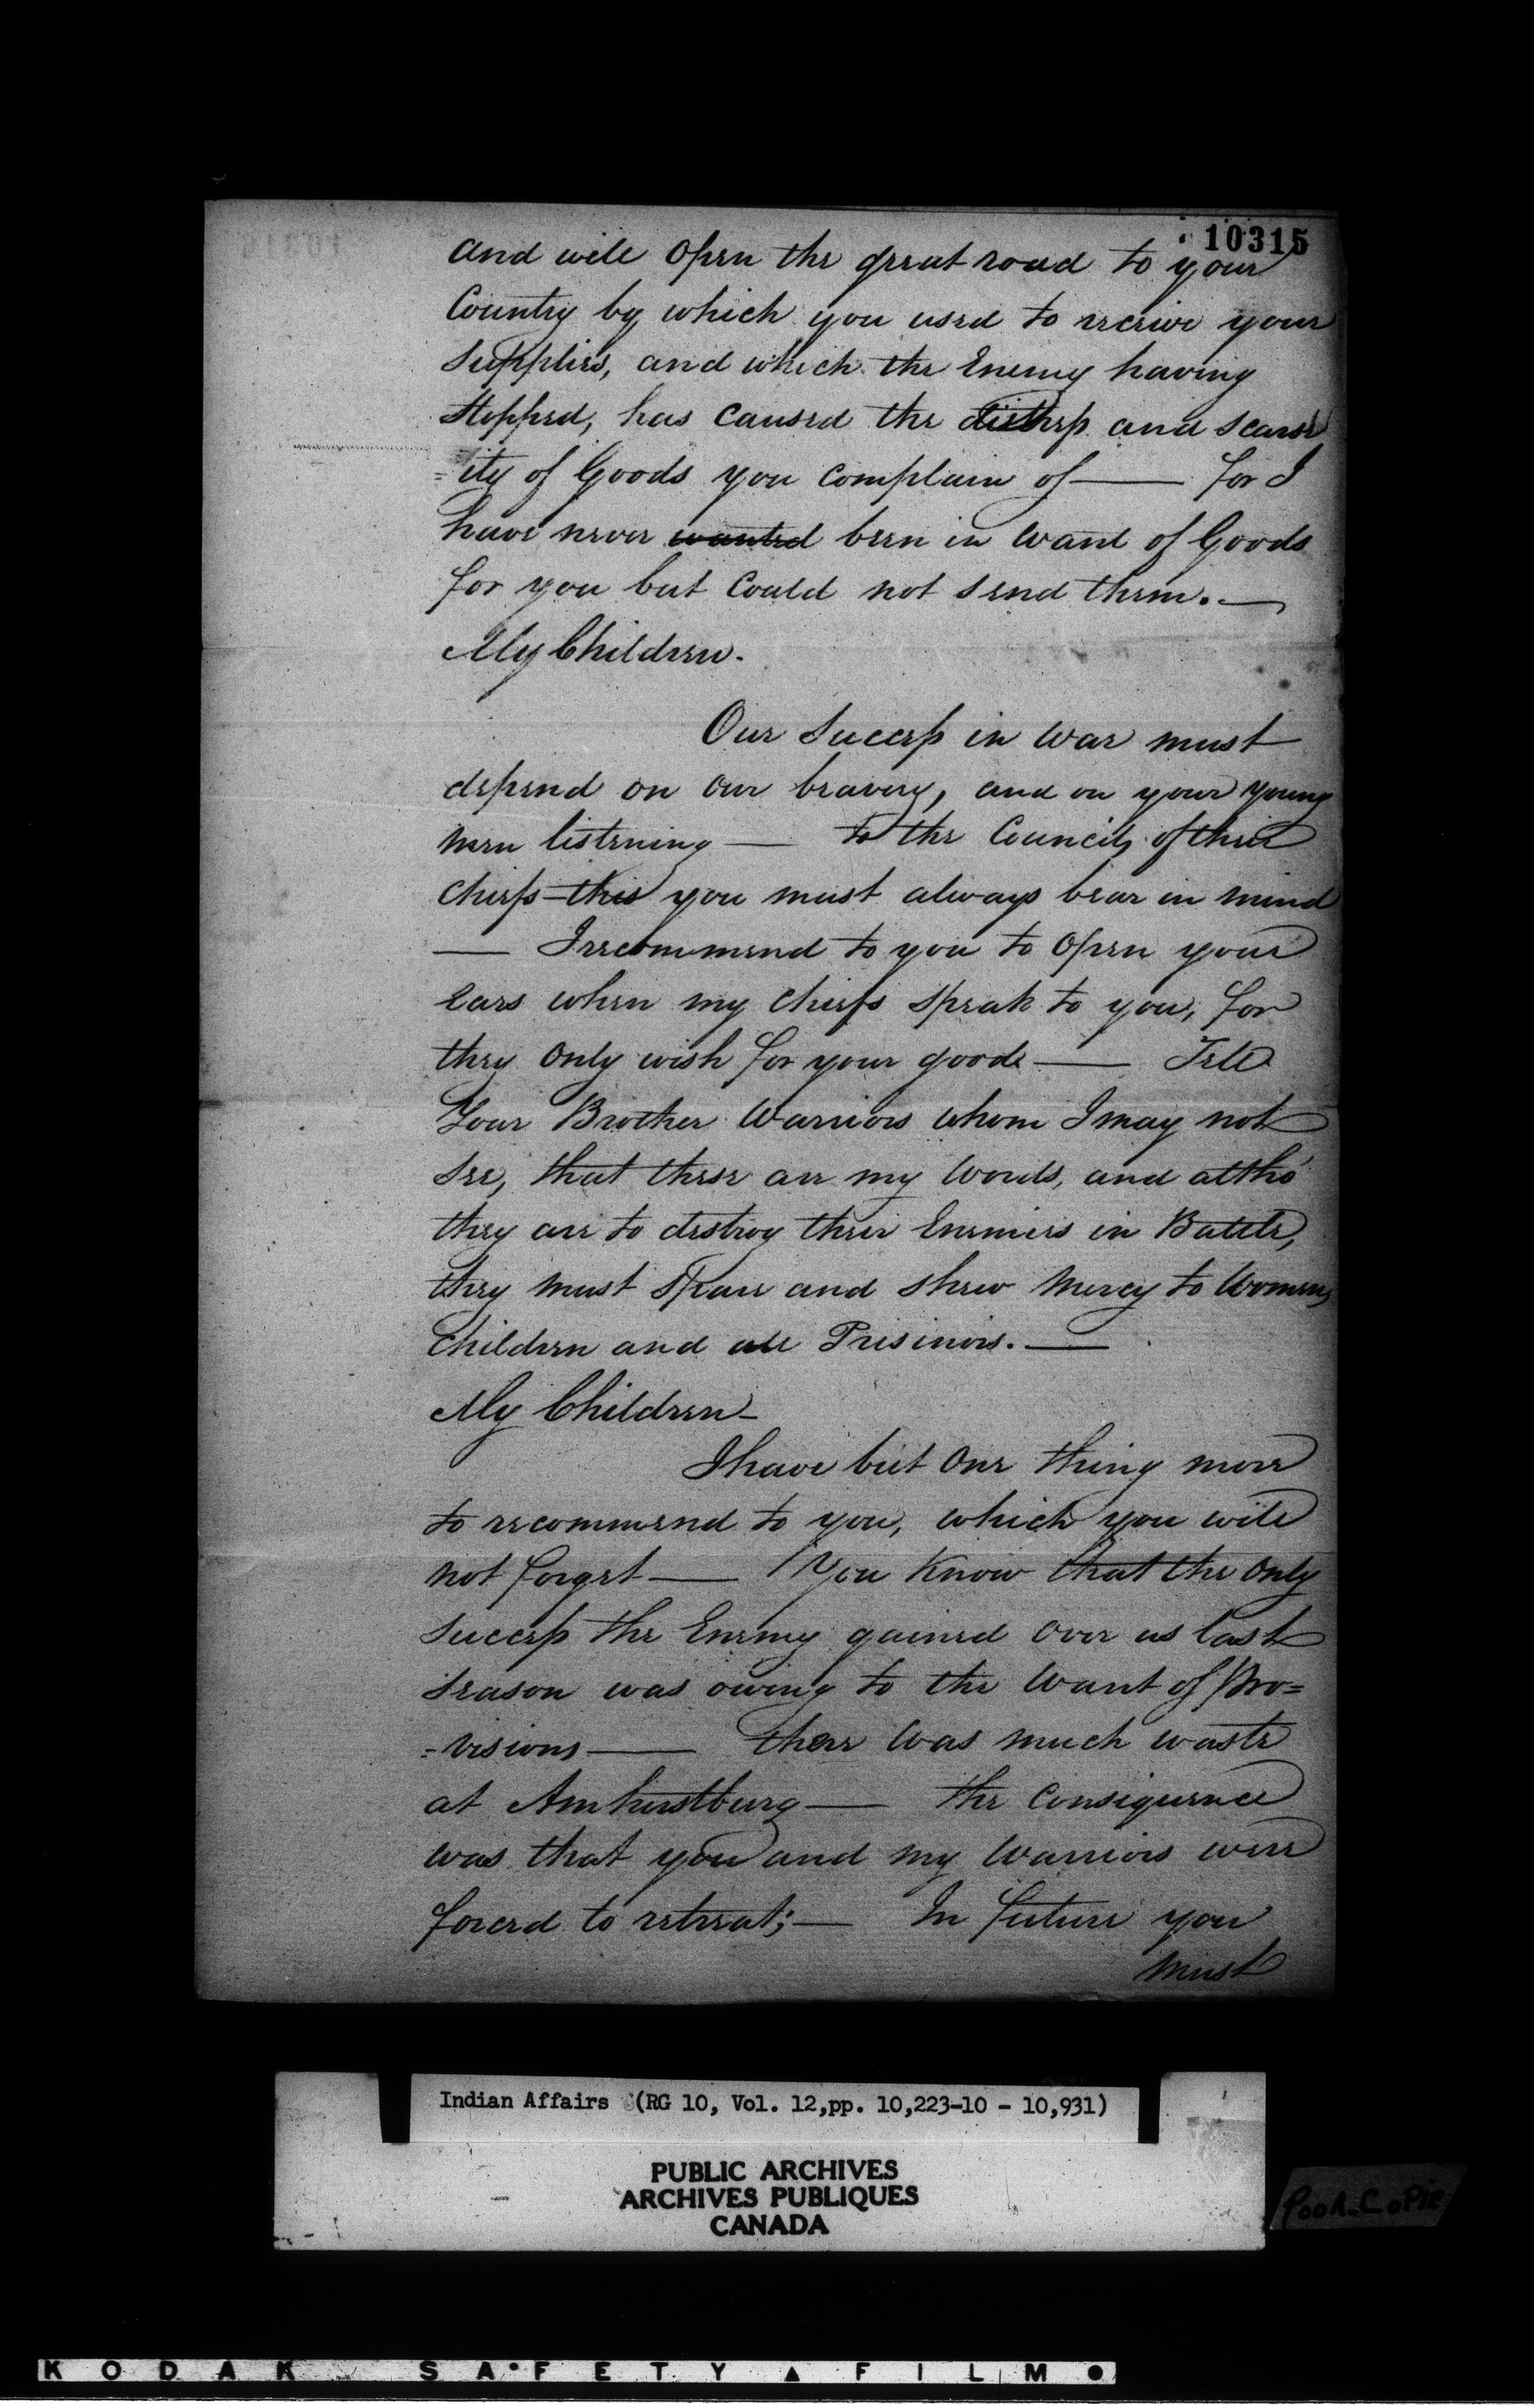 10315
and will open the great road to your
Country by which you used to receive your
Supplies, and which the Enemy having
Stopped, has caused the distress and scarc
=ity of Goods you complain of — for I
have never wanted been in want of Goods
for you but Could not send them. —
My Children.
Our Success in War must
depend on our bravery, and on your young
men listening — to the Councils of their
Chiefs — this you must always bear in mind
— I recommend to you to open your
ears when my Chiefs speak to you, for
they only wish for your good — Tell
Your Brother Warriors whom I may not
see, that these are my Words, and altho'
they are to destroy their Enemies in Battle,
they must spare and shew mercy to Women,
Children and all Prisinors. —
My Children —
I have but one thing more
to recommend to you, which you will
not forget — You know that the only
Success the Enemy gained over us last
Season was owing to the Want of pro=
=visions — there was much waste
at Amherstburg — the Consequence
was that you and my Warriors were
forced to retreat; — In future you
must
Indian Affairs (RG 10, Vol. 12,pp. 10,223-10 - 10,931)
PUBLIC ARCHIVES
ARCHIVES PUBLIQUES
CANADA
Poor Copie
KODAK SAFETY ▲ FILM ●